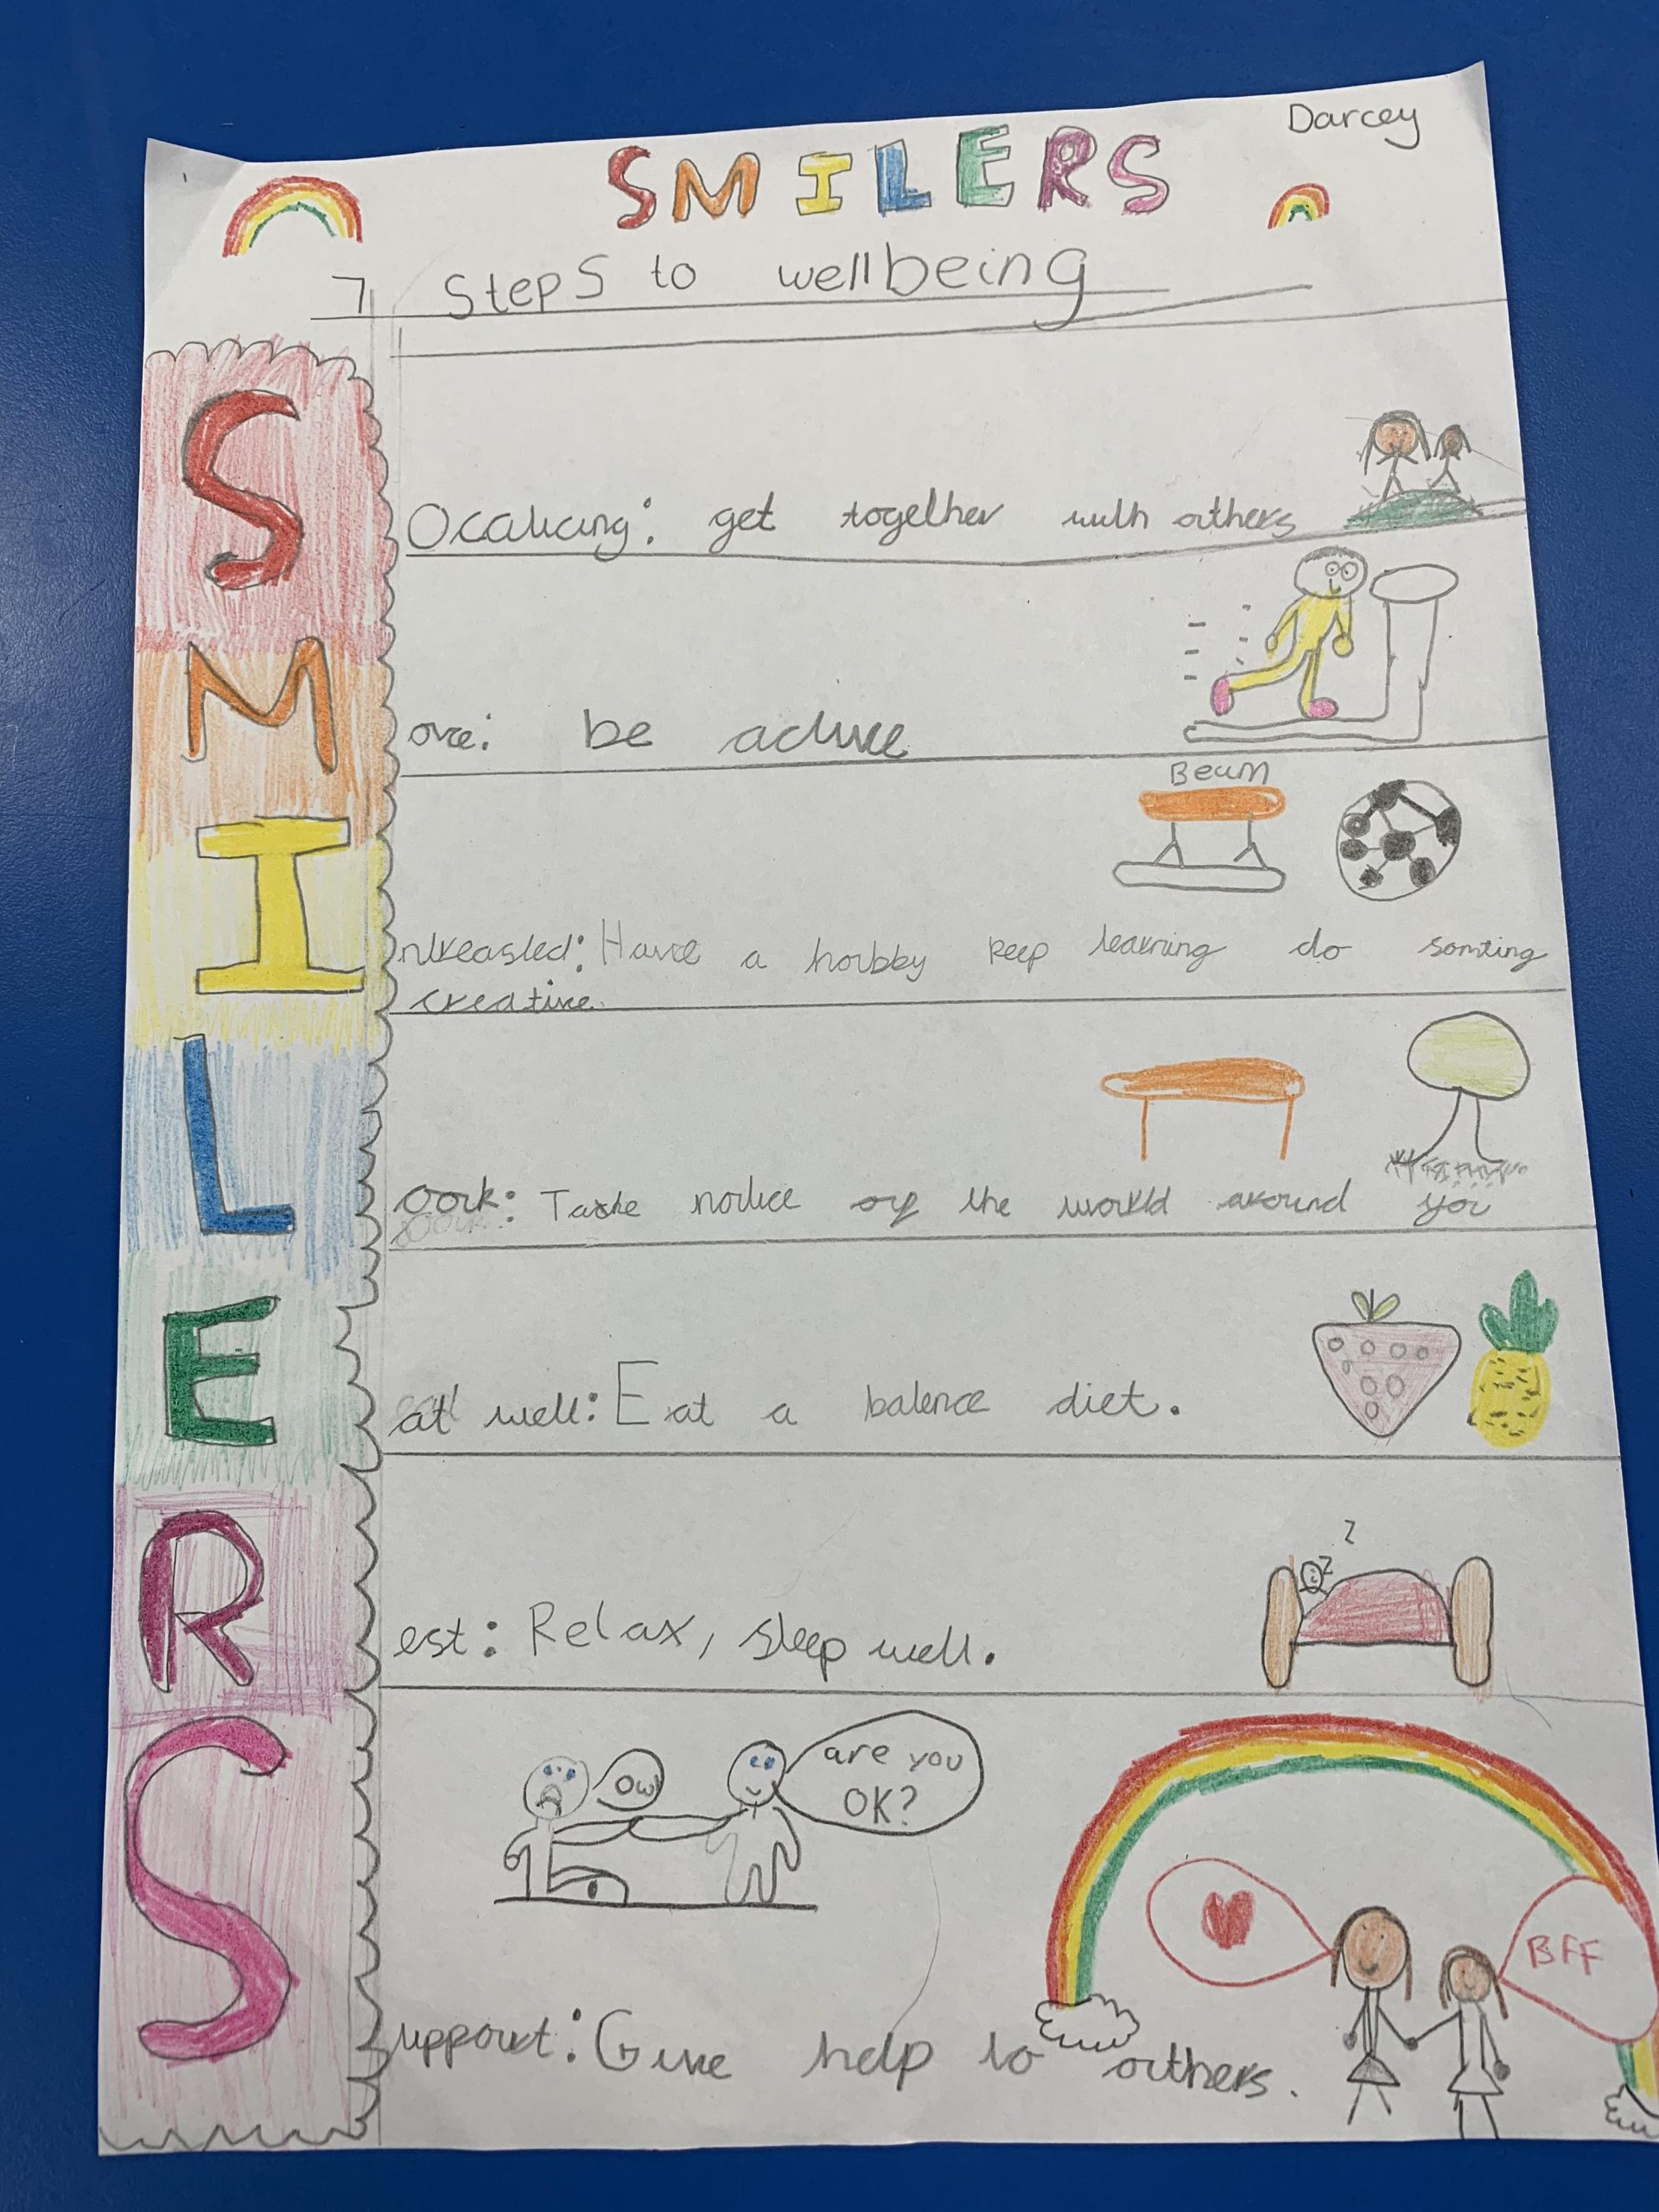 Darcey
SMILERS
7 Steps to wellbeing
S Ocalicing: get together with others
M ove: be active
Beam
I ntreasted: Have a hobby keep learning do somting
creative.
L ook: Take notice of the world around you
E at well: Eat a balence diet.
R est: Relax, sleep well.
z
z
ow
are you
OK?
BFF
S upport: Give help to others.